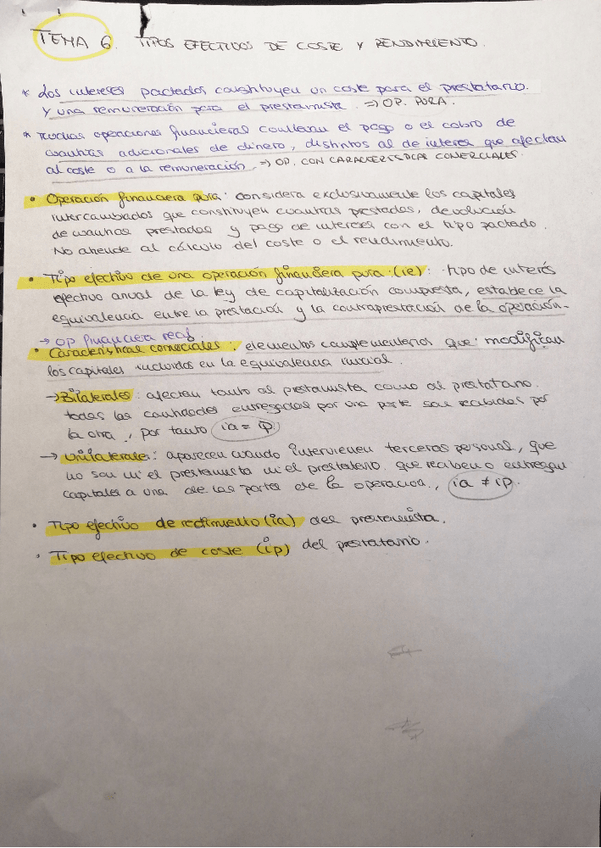 TEMA 6. TIPOS EFECTIVOS DE COSTE Y RENDIMIENTO.
* Los intereses pactados constituyen un coste para el prestatario.
Y una remuneración para el prestamista. => OP. PURA.
* Muchas operaciones financieras conllevan el pago o el cobro de
cuantías adicionales de dinero, distintos al de interés que afectan
al coste o a la remuneración. => OP. CON CARACTERISTICAS COMERCIALES.
• Operación financiera pura: considera exclusivamente los capitales
intercambiados que constituyen cuantías prestadas, devolución
de cuantías prestadas y pago de intereses con el tipo pactado.
No atiende al cálculo del coste o el rendimiento.
• Tipo efectivo de una operación financiera pura (ie): tipo de interés
efectivo anual de la ley de capitalización compuesta, establece la
equivalencia entre la prestación y la contraprestación de la operación.
→ OP financiera
• Características comerciales: elementos complementarios que modifican
los capitales incluidos en la equivalencia inicial.
→ Bilaterales: afectan tanto al prestamista como al prestatario.
todas las cantidades entregadas por una parte son recibidas por
la otra, por tanto ia = ip
→ Unilaterales: aparecen cuando intervienen terceras personas, que
no son ni el prestamista ni el prestatario. que reciben o entregan
capitales a una de las partes de la operación, ia ≠ ip.
• Tipo efectivo de rendimiento (ia) del prestamista.
• Tipo efectivo de coste (ip) del prestatario.